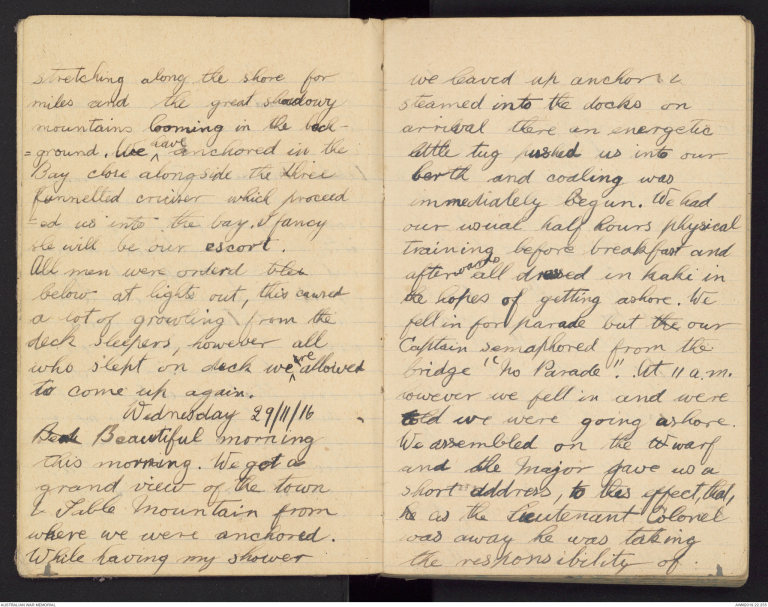 stretching along the shore for
miles and the great shadowy
mountains looming in the back-
=ground. We have anchored in the
Bay close alongside the three
funnelled criuser which proceed
-ed us into the bay. I fancy
she will be our escort.
All men were orderd
below at lights out, this caused
a lot of growling from the
deck sleepers, however all
who slept on deck were allowed
to come up again.
Wednesday 29/11/16
Beautiful morning
this morning. We got a
grand view of the town
& Table Mountain from
where we were anchored.
While having my shower
we heaved up anchor &
steamed into the docks on
arrival there an energetic
little tug pushed us into our
berth and coaling was
immediately begun. We had
our usual half hours physical
training before breakfast and
afterwards all dressed in kaki in
the hopes of getting ashore. We
fell in for parade but the our
Captain semaphored from the
bridge "No Parade". At 11 a.m.
however we fell in and were
told we were going ashore.
We assembled on the warf
and the Major gave us a
short address, to this effect, that,
he as the Lieutenant Colonel
was away he was taking
the responsibility of
AUSTRALIAN WAR MEMORIAL
AWM2019.22.255